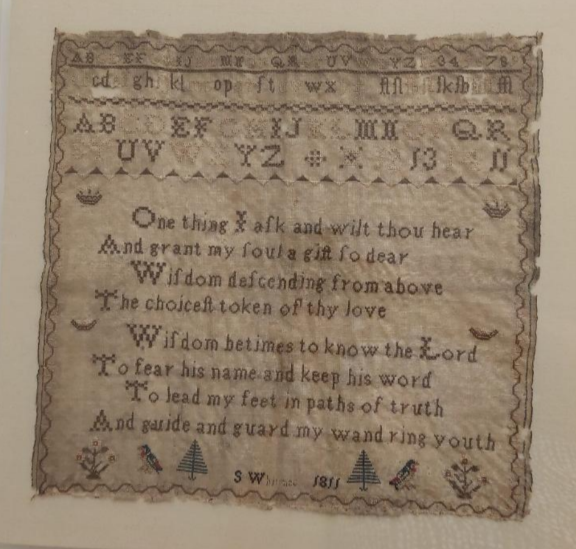 AB EF IJ MN QR UV YZ 34 78
cd gh kl op ſt wx
AB EF IJ MN QR
UV YZ 13
One thing I aſk and wilt thou hear
And grant my ſoul a gift ſo dear
Wiſdom deſcending from above
The choiceſt token of thy love
Wiſdom betimes to know the Lord
To fear his name and keep his word
To lead my feet in paths of truth
And guide and guard my wandring youth
S 1811